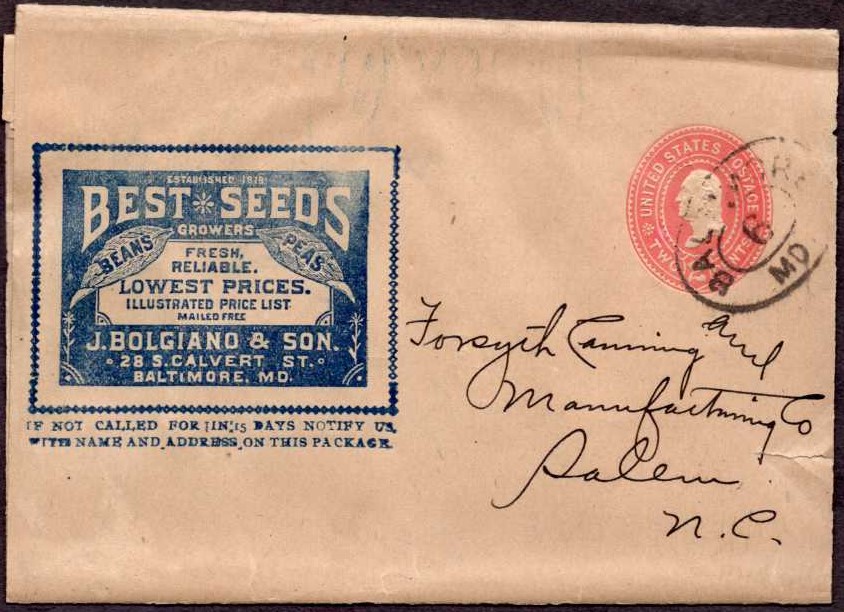 ESTABLISHED 1818
BEST SEEDS
GROWERS
BEANS
PEAS
FRESH,
RELIABLE.
LOWEST PRICES.
ILLUSTRATED PRICE LIST
MAILED FREE
J. BOLGIANO & SON.
28 S. CALVERT ST.
BALTIMORE, MD.
IF NOT CALLED FOR IN 15 DAYS NOTIFY US,
WITH NAME AND ADDRESS ON THIS PACKAGE.
UNITED STATES POSTAGE
TWO CENTS
BALTIMORE
6
MD
Forsyth Canning and
Manufacturing Co
Salem
N.C.